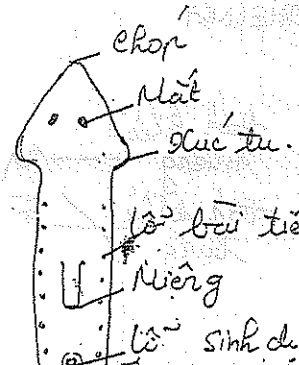 Chóp
Mắt
Xúc tu.
lỗ bài tiế
Miệng
lỗ sinh dụ